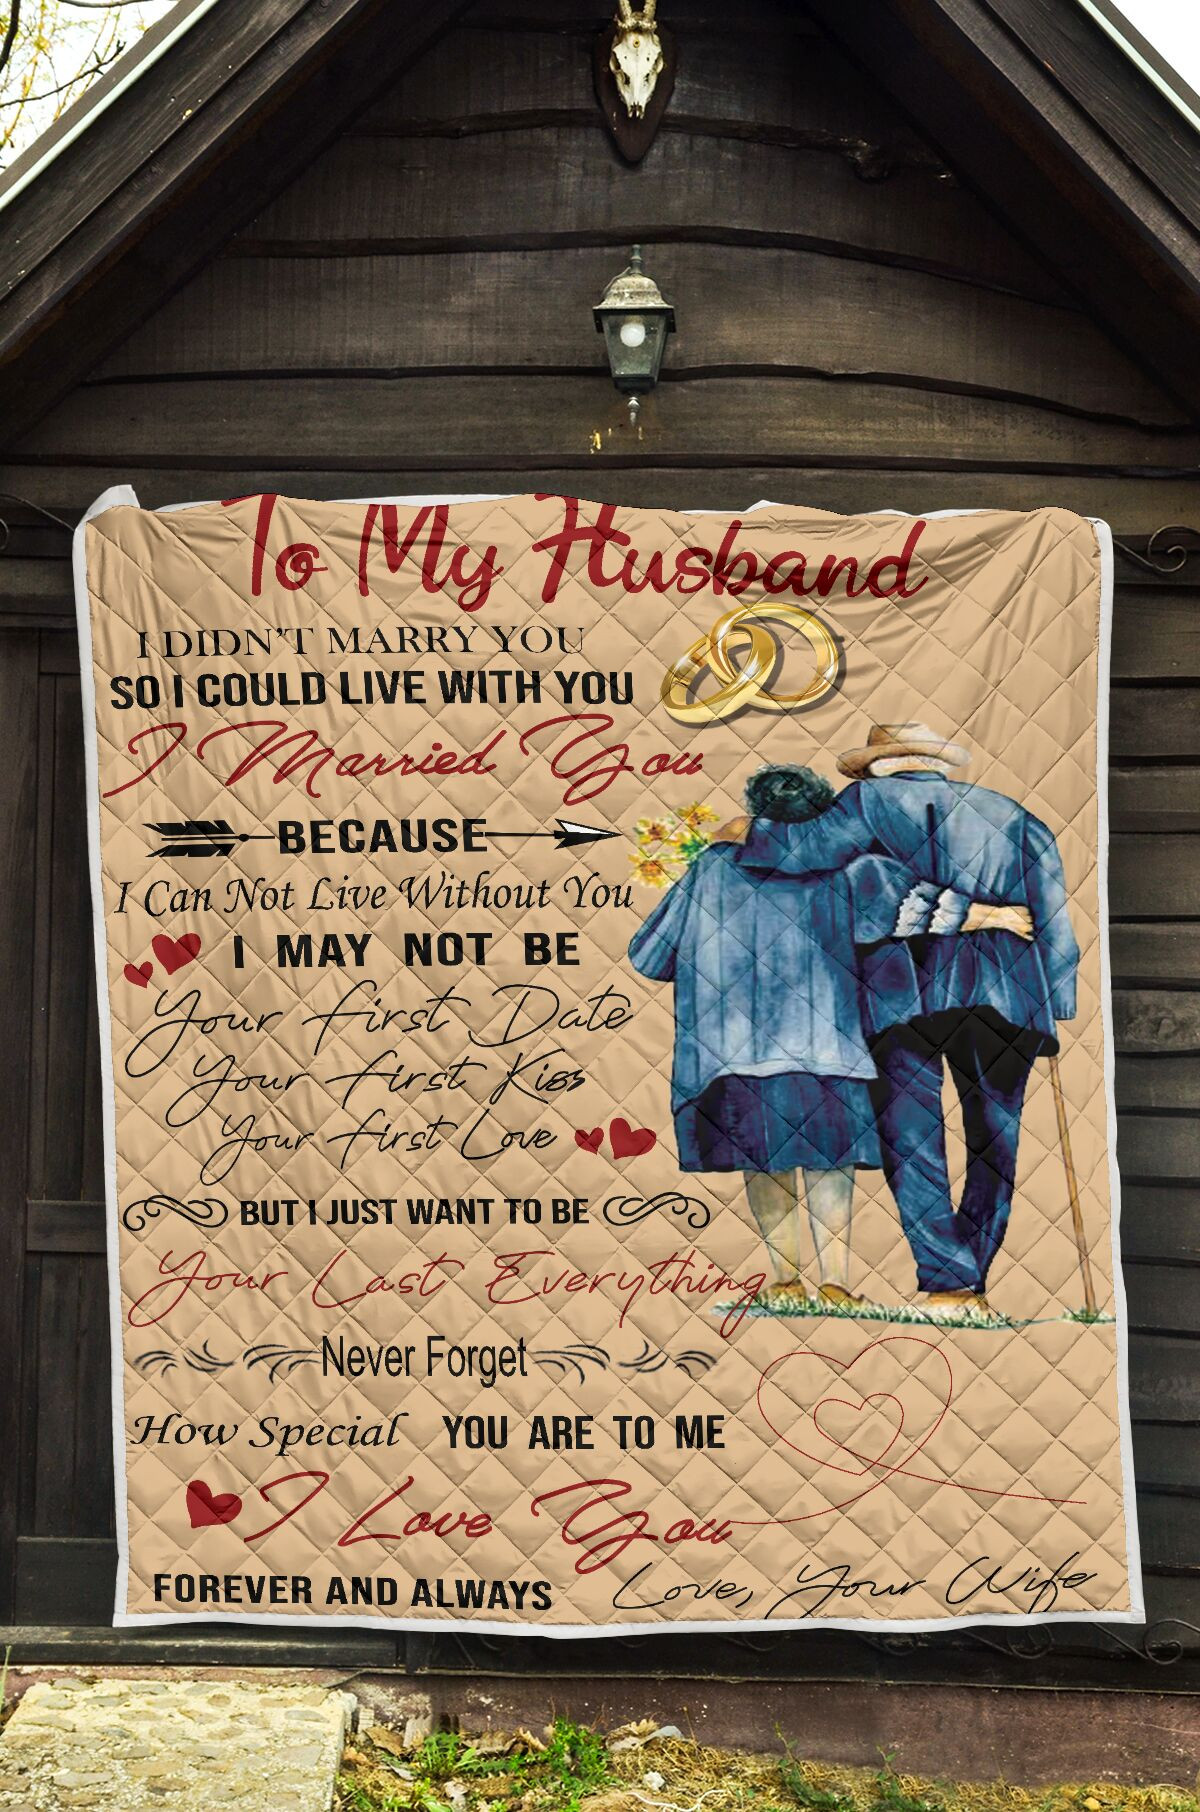 To My Husband
I DIDN'T MARRY YOU
SO I COULD LIVE WITH YOU
I Married You
BECAUSE
I Can Not Live Without You
I MAY NOT BE
Your First Date
Your First Kiss
Your First Love
BUT I JUST WANT TO BE
Your Last Everything
Never Forget
How Special YOU ARE TO ME
I Love You
FOREVER AND ALWAYS
Love, Your Wife